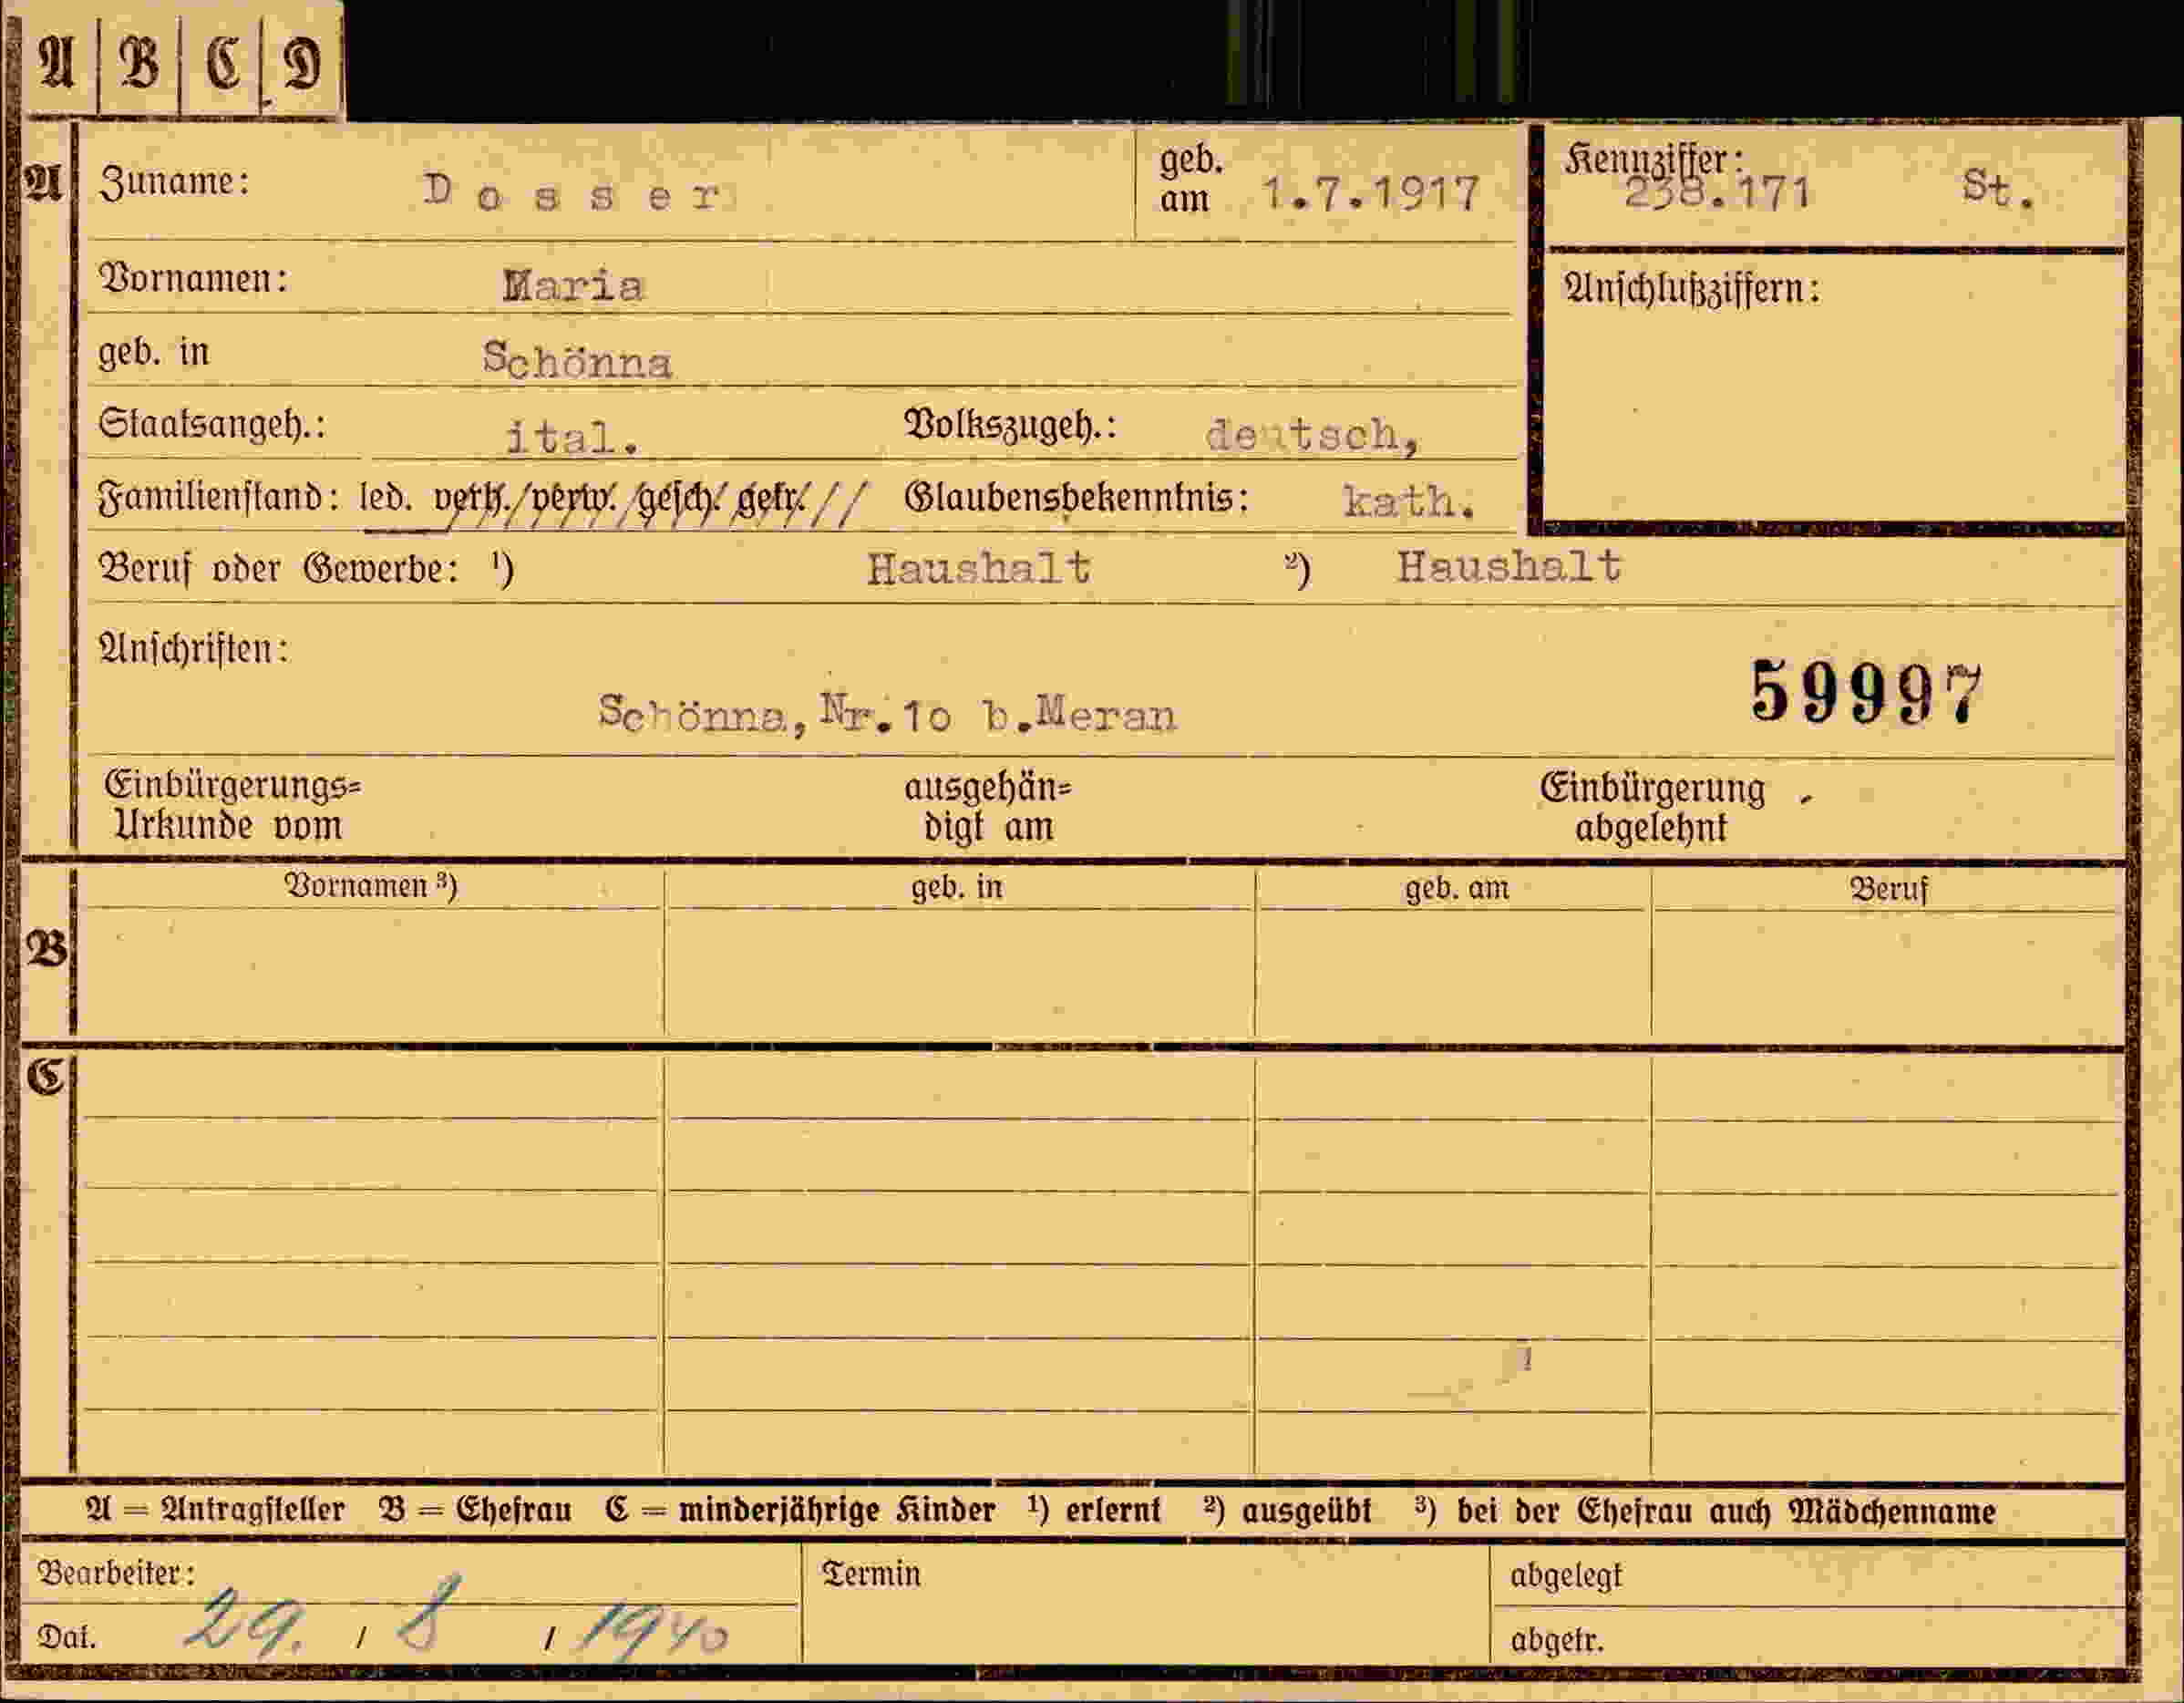 A B C D
A Zuname: Dosser geb. am 1.7.1917 Kennziffer: 238.171 St.
Vornamen: Maria Anschlußziffern:
geb. in Schönna
Staatsangeh.: ital. Volkszugeh.: deutsch,
Familienstand: led. verh./verw./gesch./getr.// Glaubensbekenntnis: kath.
Beruf oder Gewerbe: ¹) Haushalt ²) Haushalt
Anschriften:
59997
Schönna, Nr.10 b.Meran
Einbürgerungs= ausgehän= Einbürgerung
Urkunde vom digt am abgelehnt
Vornamen ³) geb. in geb. am Beruf
B
C
A = Antragsteller B = Ehefrau C = minderjährige Kinder ¹) erlernt ²) ausgeübt ³) bei der Ehefrau auch Mädchenname
Bearbeiter: Termin abgelegt
Dat. 29. / 8 / 1940 abgetr.